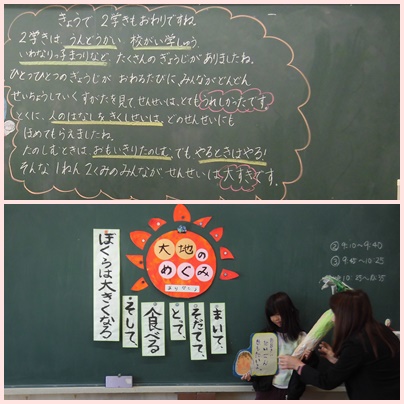 きょうで 2学きもおわりですね。
2学きは、うんどうかい 校がい学しゅう
いわなりっ子まつりなど、たくさんのぎょうじがありましたね。
ひとつひとつのぎょうじが おわるたびに、みんながどんどん
せいちょうしていく すがたを見て せんせいは、とてもうれしかったです。
とくに、人のはなしを きくしせいは、どのせんせいにも
ほめてもらえましたね。
たのしむときは、おもいきりたのしむ、でも やるときはやる!
そんな 1ねん2くみのみんなが せんせいは 大すきです。
大地の
めぐみ
まいて、
そだてて、
とって
食べる
そして、
ぼくらは大きくなる
② 9:10~9:40
③ 9:45~10:25